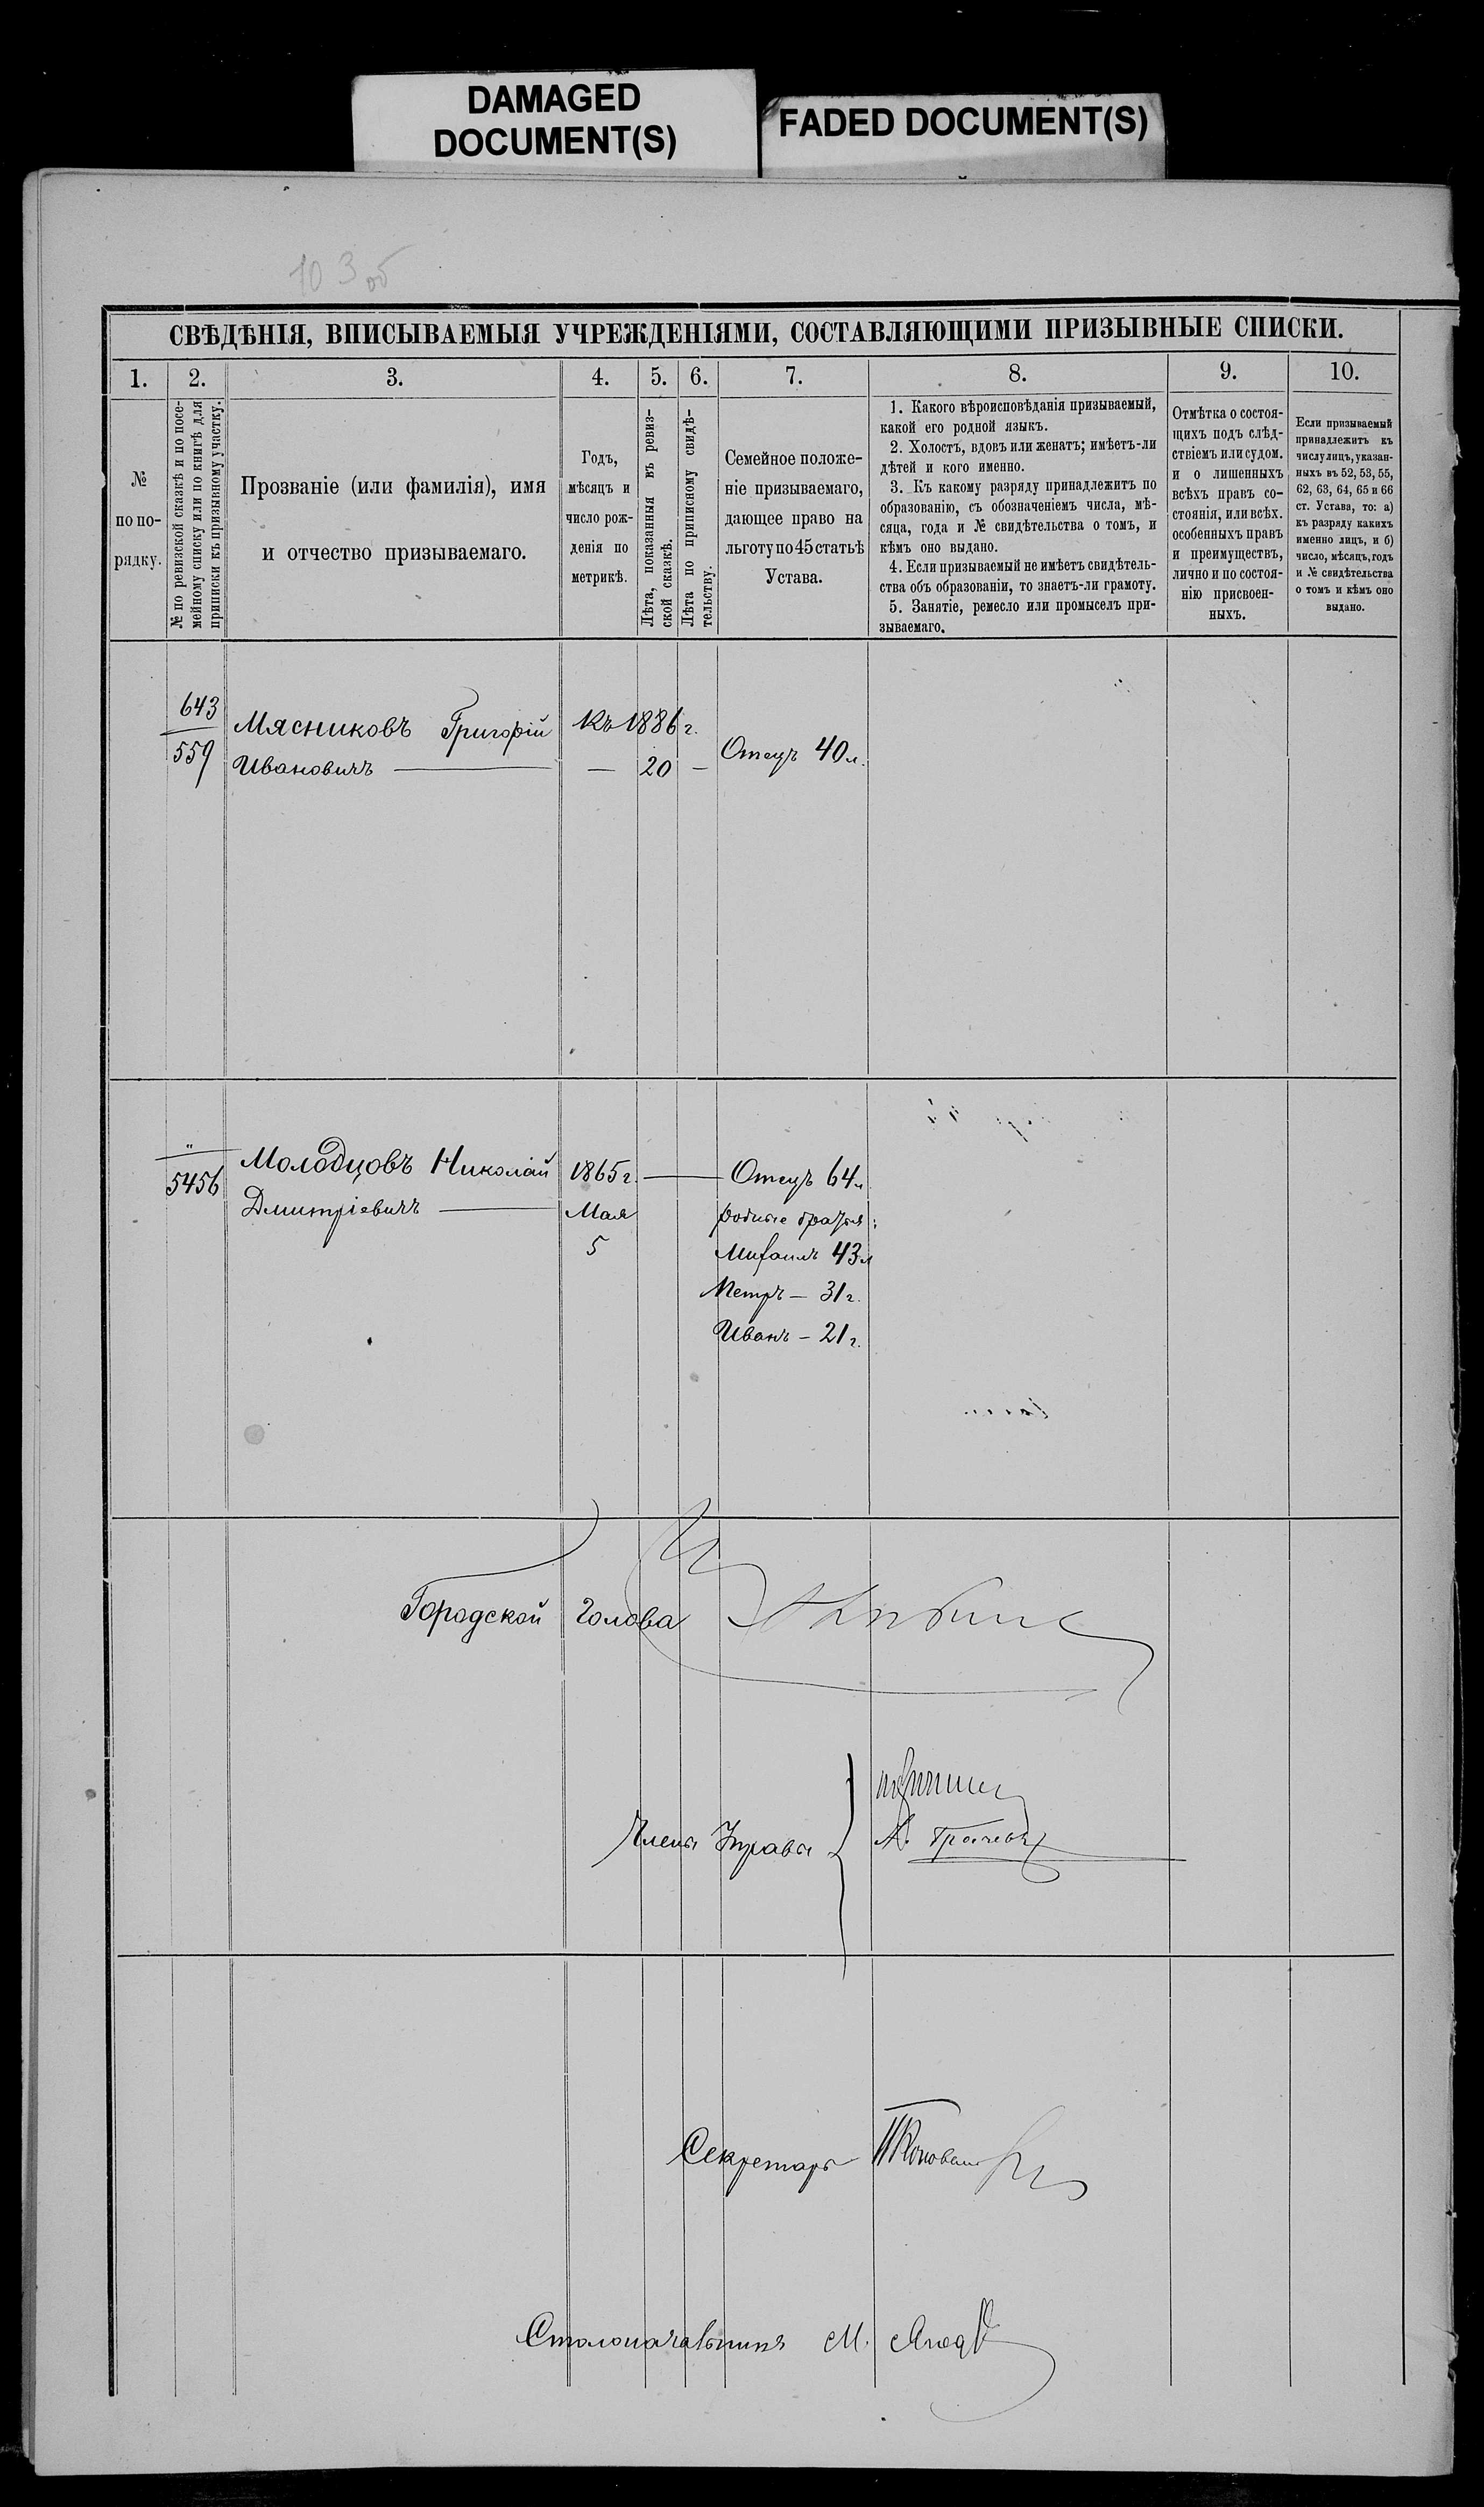 DAMAGED
DOCUMENT(S)
FADED DOCUMENT(S)
103 об
СВѢДѢНІЯ, ВПИСЫВАЕМЫЯ УЧРЕЖДЕНІЯМИ, СОСТАВЛЯЮЩИМИ ПРИЗЫВНЫЕ СПИСКИ.
1. 2. 3. 4. 5. 6. 7. 8. 9. 10.
№
по по-
рядку.
№ по ревизской сказкѣ и по посе-
мейному списку или по книгѣ для
приписки къ призывному участку.
Прозваніе (или фамилія), имя
и отчество призываемаго.
Годъ,
мѣсяцъ и
число рож-
денія по
метрикѣ.
Лѣта, показанныя въ ревиз-
ской сказкѣ.
Лѣта по приписному свидѣ-
тельству.
Семейное положе-
ніе призываемаго,
дающее право на
льготу по 45 статьѣ
Устава.
1. Какого вѣроисповѣданія призываемый,
какой его родной языкъ.
2. Холостъ, вдовъ или женатъ; имѣетъ-ли
дѣтей и кого именно.
3. Къ какому разряду принадлежитъ по
образованію, съ обозначеніемъ числа, мѣ-
сяца, года и № свидѣтельства о томъ, и
кѣмъ оно выдано.
4. Если призываемый не имѣетъ свидѣтель-
ства объ образованіи, то знаетъ-ли грамоту.
5. Занятіе, ремесло или промыселъ при-
зываемаго.
Отмѣтка о состоя-
щихъ подъ слѣд-
ствіемъ или судом.
и о лишенныхъ
всѣхъ правъ со-
стоянія, или всѣх.
особенныхъ правъ
и преимуществъ,
лично и по состоя-
нію присвоен-
ныхъ.
Если призываемый
принадлежитъ къ
числу лицъ, указан-
ныхъ въ 52, 53, 55,
62, 63, 64, 65 и 66
ст. Устава, то: а)
къ разряду какихъ
именно лицъ, и б)
число, мѣсяцъ, годъ
и № свидѣтельства
о томъ и кѣмъ оно
выдано.
643
559
Мясниковъ Григорій
Ивановичъ —
Къ 1886 г.
— 20 —
Отецъ 40 л.
"
5456
Молодцовъ Николай
Дмитріевичъ —
1865 г.
Мая
5
—
Отецъ 64 л
родные братья:
Михаилъ 43 л
Петръ — 31 г.
Иванъ — 21 г.
Городской Голова
Члены Управы
А. Грачевъ
Секретарь
Столоначальникъ М.